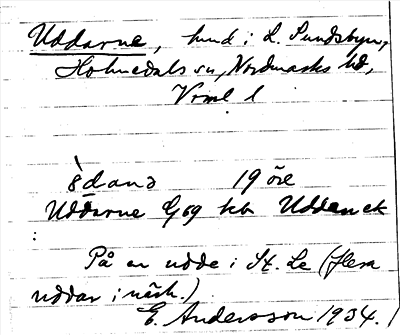 Uddarne, hmd i L. Sundsbyn,
Holmedals sn, Nordmarks hd,
Vrml l
19 öre
Uddarne G69 kb Uddenek
På en udde i St. Le (flera
uddar i närh.)
E. Andersson 1934.